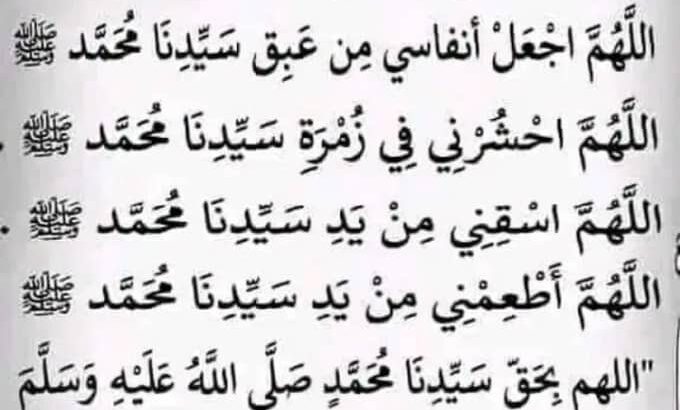 اللَّهُمَّ اجْعَلْ أنفاسي مِن عَبِق سَيِّدِنَا مُحَمَّد ﷺ
اللَّهُمَّ احْشُرْنِي فِي زُمْرَةِ سَيِّدِنَا مُحَمَّد ﷺ .
اللَّهُمَّ اسْقِنِي مِنْ يَدِ سَيِّدِنَا مُحَمَّد ﷺ .
اللَّهُمَّ أَطْعِمْنِي مِنْ يَدِ سَيِّدِنَا مُحَمَّد ﷺ
"اللهم بِحَقّ سَيِّدِنَا مُحَمَّدٍ صَلَّى اللهُ عَلَيْهِ وَسَلَّمَ